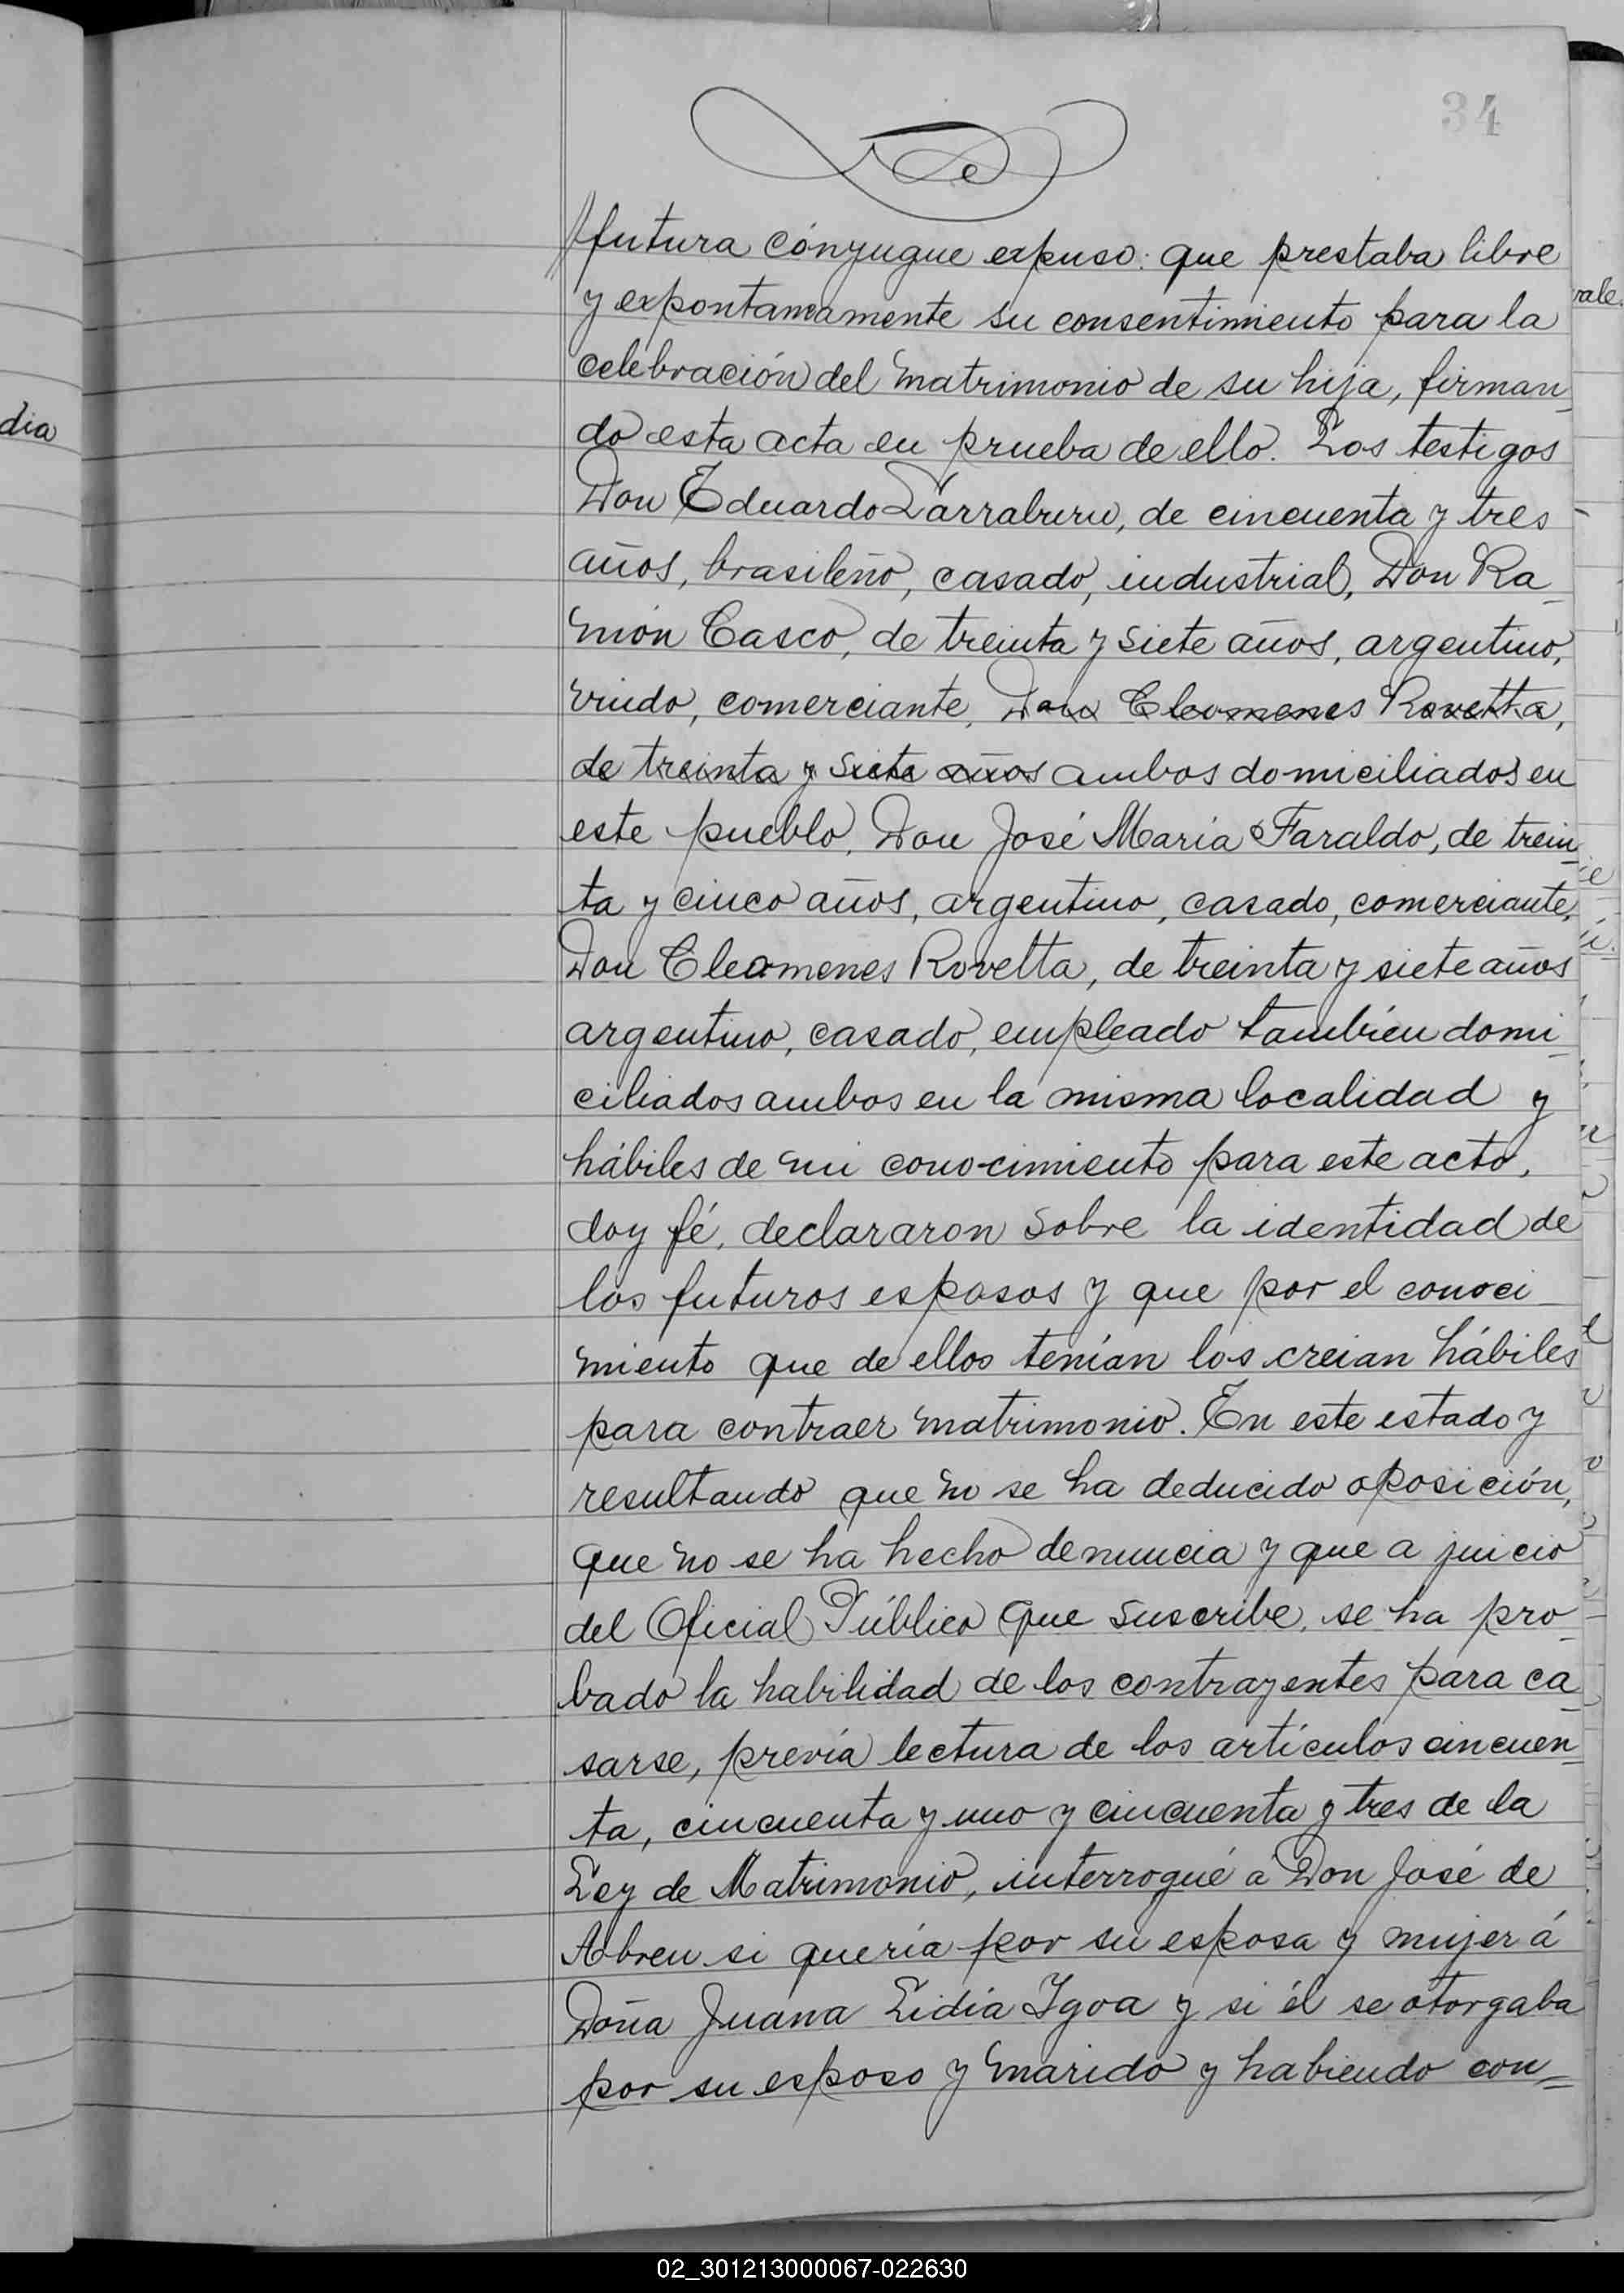 34
futura cónyugue expuso: que prestaba libre
y expontaneamente su consentimiento para la
celebración del matrimonio de su hija, firman_
do esta acta en prueba de ello. Los testigos
Don Eduardo Larraburu, de cincuenta y tres
años, brasileño, casado, industrial, Don Ra_
món Casco, de treinta y siete años, argentino,
viudo, comerciante, Don Cleomenes Rovetta,
de treinta y siete años ambos domiciliados en
este pueblo, Don José María Faraldo, de trein_
ta y cinco años, argentino, casado, comerciante,
Don Cleomenes Rovetta, de treinta y siete años
argentino, casado, empleado también domi_
ciliados ambos en la misma localidad y
hábiles de mi conocimiento para este acto,
doy fé, declararon sobre la identidad de
los futuros esposos y que por el conoci_
miento que de ellos tenían los creian hábiles
para contraer matrimonio. En este estado y
resultando que no se ha deducido oposición,
que no se ha hecho denuncia y que a juicio
del Oficial Público que suscribe, se ha pro_
bado la habilidad de los contrayentes para ca_
sarse, previa lectura de los artículos cincuen_
ta, cincuenta y uno y cincuenta y tres de la
Ley de Matrimonio, interrogué á Don José de
Abreu si quería por su esposa y mujer á
Doña Juana Lidia Ygoa y si él se otorgaba
por su esposo y marido y habiendo con=
dia
rale.
02_301213000067-022630